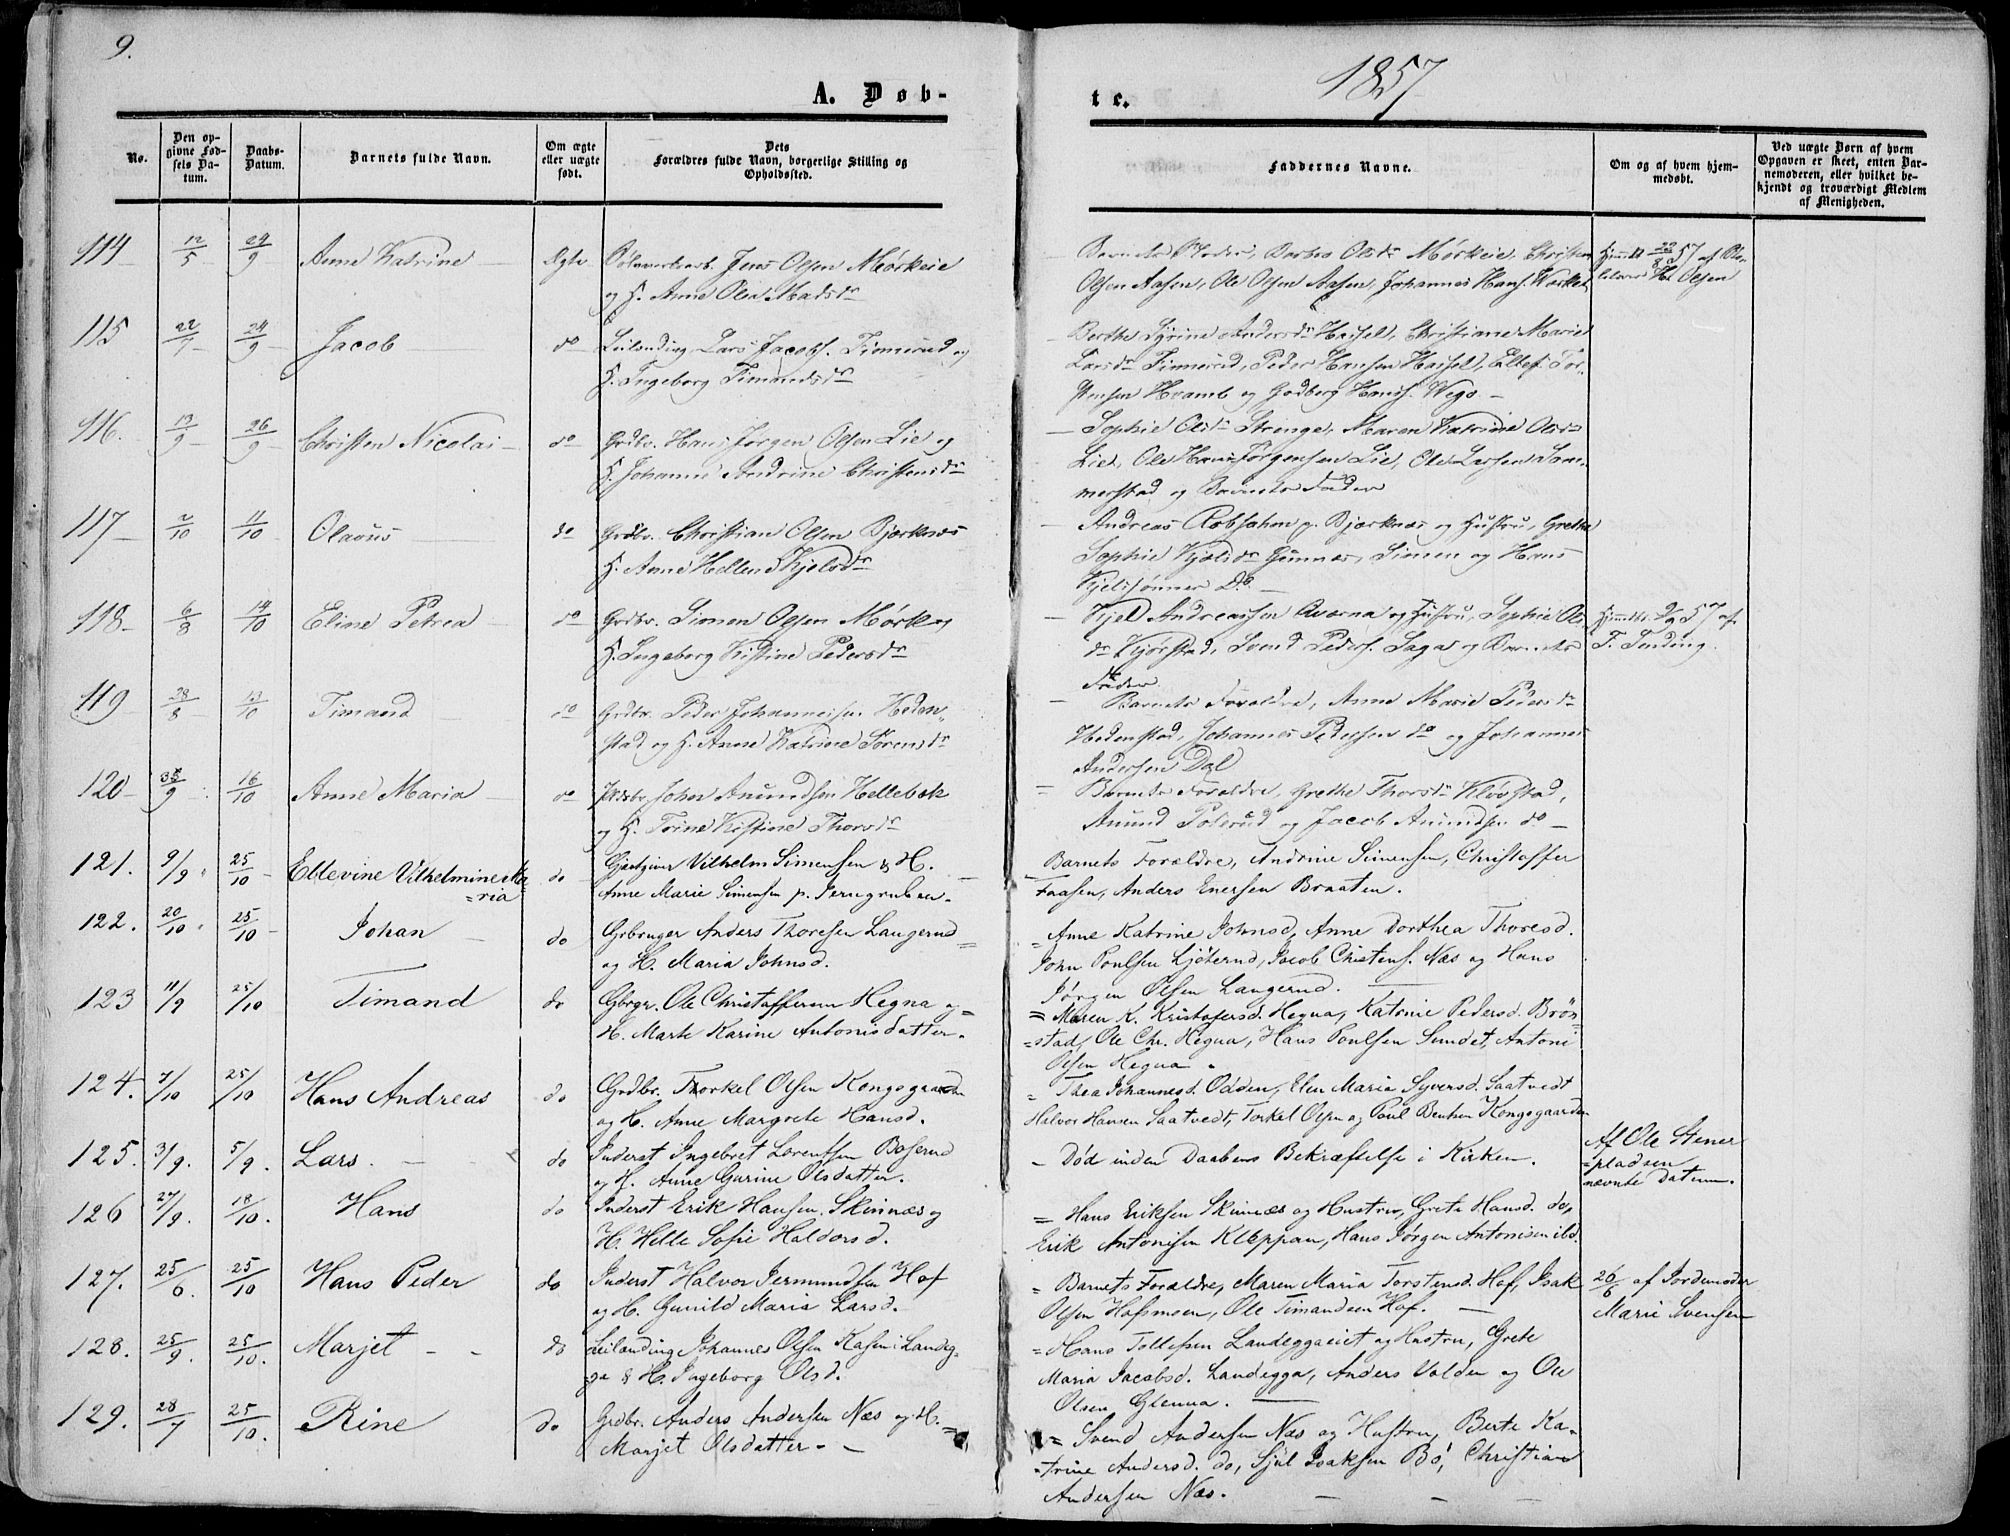 9.
1857
A. Døb-
te.
No.
Den op-
givne Fød-
sels Da-
tum.
Daabs-
Datum.
Barnets fulde Navn.
Om ægte
eller uægte
født.
Dets
Forældres fulde Navn, borgerlige Stilling og
Opholdssted.
Faddernes Navne.
Om og af hvem hjem-
medøbt.
Ved uægte Børn af hvem
Opgaven er skeet, enten Bar-
nemoderen, eller hvilket be-
kjendt og troværdigt Medlem
af Menigheden.
114 12/5 24/9 Anne Katrine Ægte Jens Olsen Mørkeie
og H. Anne Olea Madsdr
Barnets Moder, Berthe Olsdr Mørkeie, Christen
Olsen Aasen, Ole Olsen Aasen, Johannes Hans.
Olsen
115 22/7 24/9 Jacob do Leilending Lars Jacobs. Timerud og
H. Ingeborg Timandsdr
Berthe Syrine Andersdr Hassel, Christiane Marie
Larsdr Timmerud, Peder Hansen Hassel, Ellef Tor-
stensen Hvamb og Gudberg Hans. Wego
116. 13/9 26/9 Christen Nicolai do Grdbr. Hans Jørgen Olsen Lie og
H. Johanne Andrine Christensdr
Sophie Olsdr Strenge, Maren Katrine Olsdr
Lie, Ole Hans Jørgensen Lie, Ole Larsen Sam-
merstad og Barnets Fader
117 2/10 11/10 Olaus do Grdbr. Christian Olsen Bjørknes
H. Anne Hellene Kjelsdr
Andreas Robsahm p. Bjørknæs og Hustru, Grethe
Sophie Kjelsdr Gunnes, Simen og Hans
Kjelssønner Do
118 6/8 14/10 Eline Petrea do Grdbr. Simen Olsen Mørk og
H. Ingeborg Kistine Pedersdr
Kjel Andreassen Aværna og Hustru, Sophie Ols-
dr Kjørstad, Svend Peders. Saga og Barnets
Fader
57 af
119 28/8 13/10 Timand do Grdbr. Peder Johannesen Heden-
stad og H. Anne Katrine Sørensdr
Barnets Forældre, Anne Marie Pedersdr
Hedenstad, Johannes Pedersen do og Johannes
Andersen Dal
120 /9 16/10 Anne Maria do John Anundsen Hellebæk
og H. Trine Kistine Thorsdr
Barnets Forældre, Grethe Thorsdr Klovstad,
Anund Polerud og Jacob Anundsen do
121. 9/9 25/10 Ellevine Vilhelmine Ma-
=ria do Gjestgiver Vilhelm Simensen & H.
Anne Marie Simensen p. Jerngruben.
Barnets Forældre, Andrine Simensen, Christoffer
Faasen, Anders Enersen Braaten.
122. 20/10 25/10 Johan do Grbruger Anders Thoresen Langerud
og H. Maria Johnsd.
Anne Katrine Johnsd, Anne Dorthea Thoresd.
John Poulsen Ljøterud, Jacob Christens. Næs og Hans
Jørgen Olsen Langerud.
123 11/9 25/10 Timand do Gbrgr. Ole Christoffersen Hegna og
H. Marte Karine Antonisdatter.
Maren K. Kristofersd. Hegna, Katrine Pedersd. Brön-
=stad, Ole Chr. Hegna, Hans Poulsen Sundet, Antoni
Olsen Hegna.
124. 7/10 25/10 Hans Andreas do Grdbr. Thorkel Olsen Kongsgaarden
og H. Anne Margrete Hansd.
Thea Johannesd. Odden, Elen Maria Syversd. Saatvedt
Halvor Hansen Saatvedt, Torkel Olsen og Poul Bentsen Kongsgaarden
125. 3/9. 5/9. Lars. do Inderst Ingebret Lorentsen Boserud
og H. Anne Gurine Olsdatter.
Död inden Daabens Bekræftelse i Kirken.
Af Ole Stener
=pladsen
nævnte Datum.
126 27/9. 18/10. Hans do Inderst Erik Hansen Skinnæs og
H. Helle Sofie Haldorsd.
Hans Eriksen Skinnæs og Hustru, Grete Hansd. do,
Erik Antonisen Kleppan, Hans Jørgen Antonisen ibd.
127. 25/6. 25/10 Hans Peder do Inderst Halvor Jermundsen Hof
og H. Gunild Maria Larsd.
Barnets Forældre, Maren Maria Torstensd. Hof, Isak
Olsen Hofsmoen, Ole Timandsen Hof.
26/6 af Jordemoder
Marie Svensen
128. 25/9. 25/10. Marjet do Leilending Johannes Olsen Kasen i Landeg-
ga & H. Ingeborg Olsd.
Hans Tollefsen Landeggaeiet og Hustru, Grete
Maria Jacobsd. Landegga, Anders Volden og Ole
Olsen Glenna.
129. 28/7 25/10. Rine do Grdbr. Anders Andersen Næs og H.
Marjet Olsdatter.
Svend Andersen Næs og Hustru, Berte Ka-
=trine Andersd. do, Sjul Isaksen Bö, Christian
Andersen Næs.